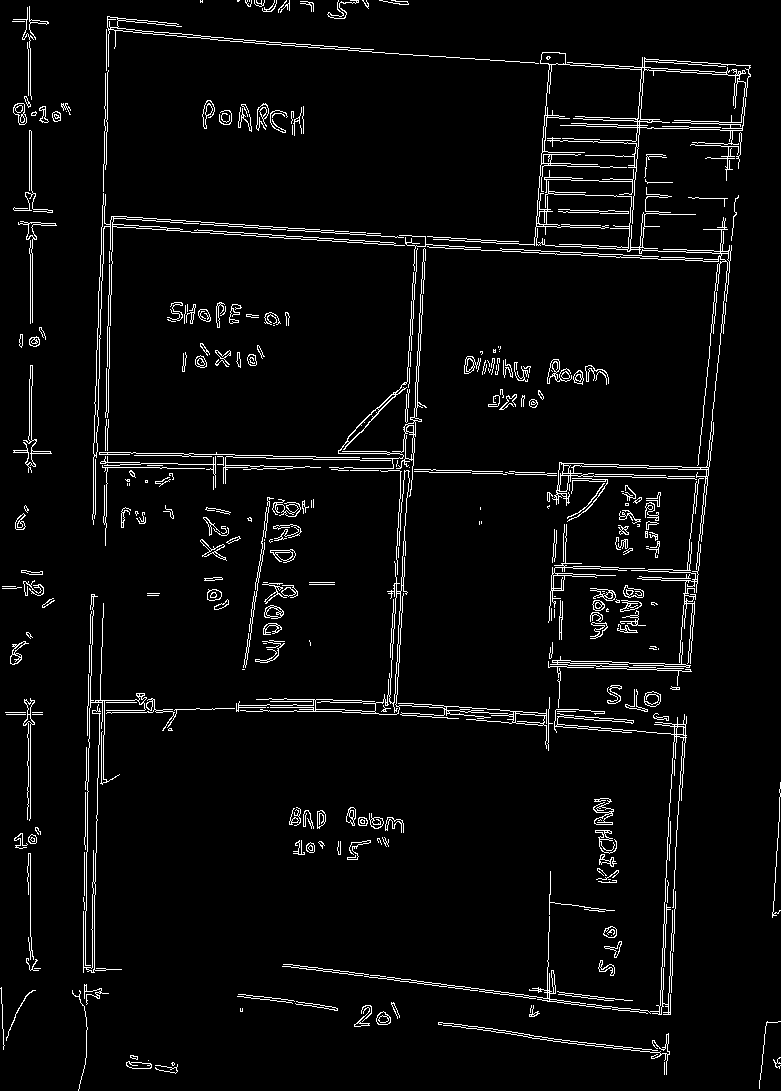 8'-10"
POARCH
10'
SHOPE-01
10'X10'
Dining Room
9'X10'
6'
12'
6'
BAD ROOM
12'X10'
TOILET
4'.6"X5'
BATH
ROOM
OTS
10'
BAD ROOM
10'15"
KICHNN
OTS
20'